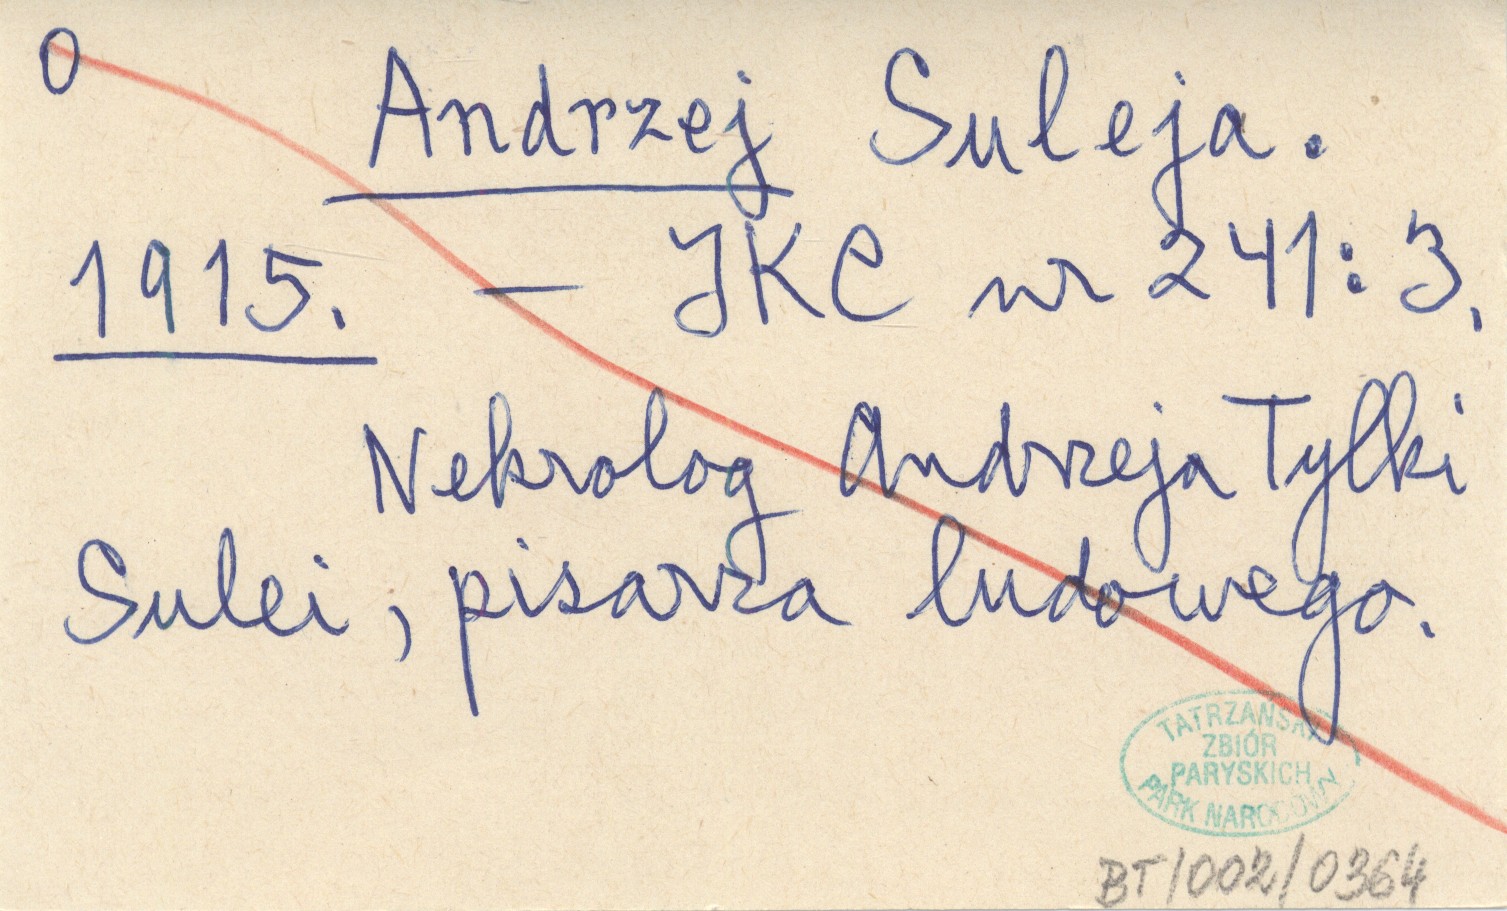 O
Andrzej Suleja.
1915. – JKC nr 241: 3.
Nekrolog Andrzeja Tylki
Sulei, pisarza ludowego.
TATRZAŃSKI
ZBIÓR
PARYSKICH
PARK NARODOWY
BT/002/0364